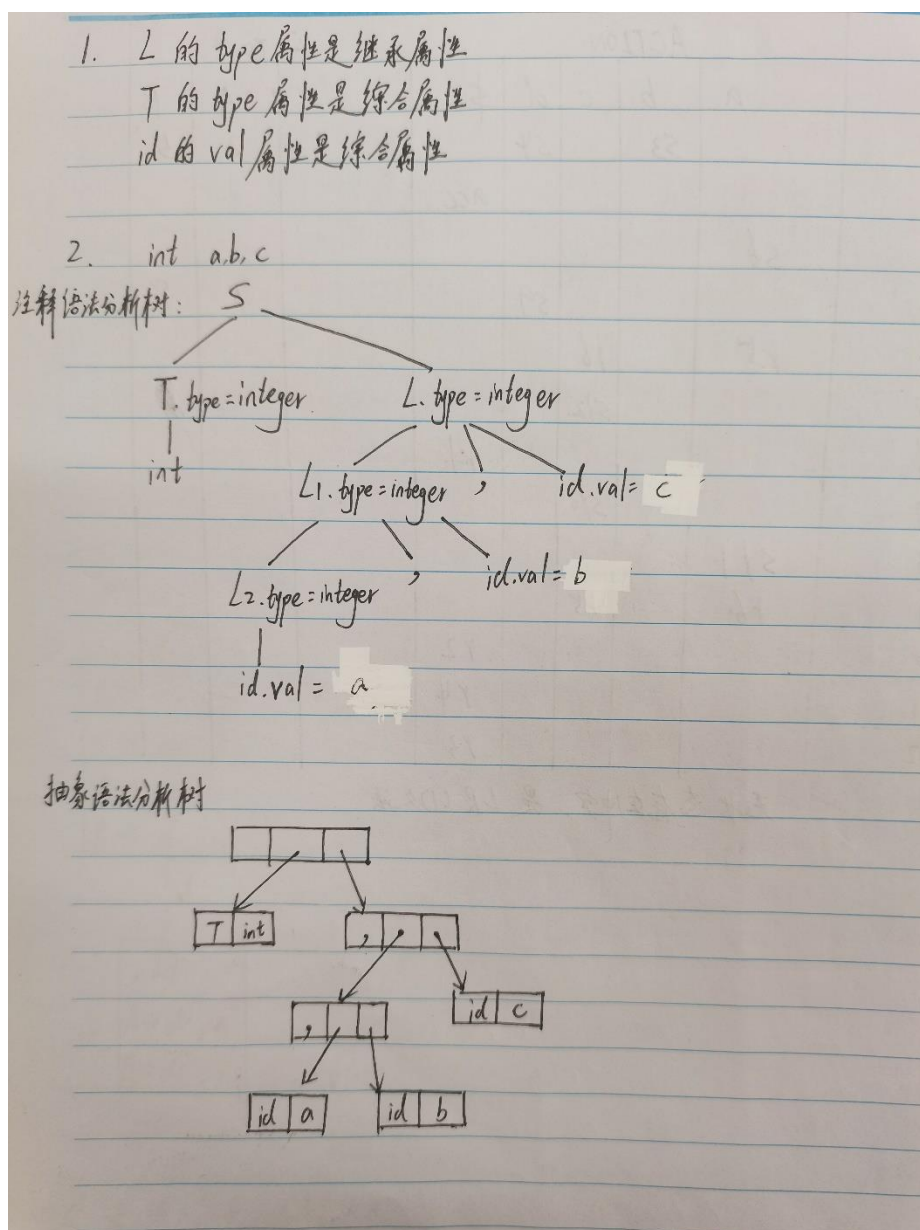 1. L 的 type 属性是继承属性
T 的 type 属性是综合属性
id 的 val 属性是综合属性
2. int a,b,c
注释语法分析树: S
T.type=integer L.type=integer
int L1.type=integer , id.val= c
L2.type=integer , id.val= b
id.val= a
抽象语法分析树
T int ,
, id c
id a id b